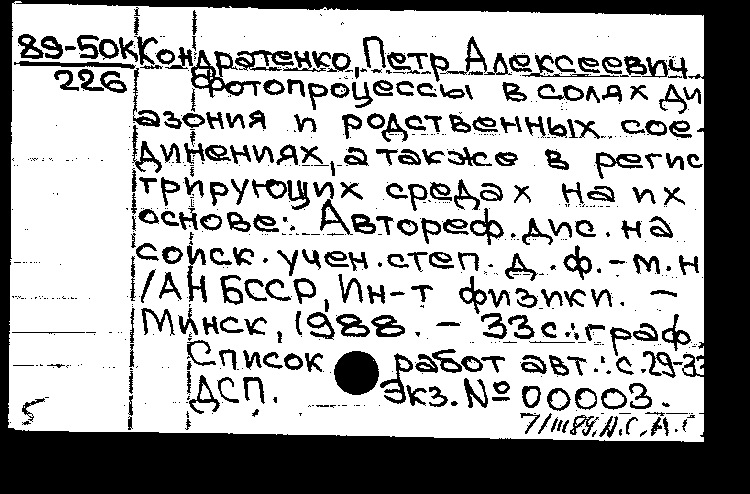 89-50К
226
Кондратенко, Петр Алексеевич
Фотопроцессы в солях ди
азония и родственных сое-
динениях, а также в регис
трирующих средах на их
основе: Автореф. дис. на
соиск. учен. степ. д. ф.-м. н
/АН БССР, Ин-т физики. -
Минск, 1988. - 33 с.: граф.
Список работ авт.: с. 29-33
ДСП. Экз. № 00003.
5
7/III 89,